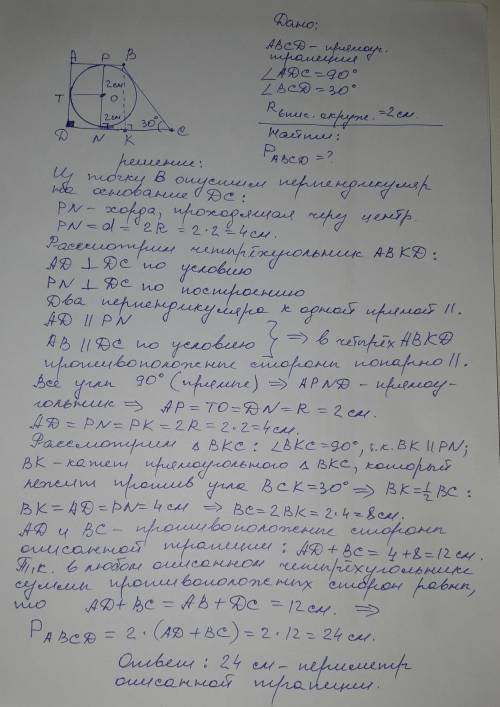 Дано:
ABCD – прямоуг.
трапеция
∠ADC = 90°
∠BCD = 30°
R впис. окруж. = 2 см.
Найти:
P ABCD = ?
A P B
2см
T O
2см 30°
D N K C
решение:
Из точки B опустим перпендикуляр
на основание DC:
PN – хорда, проходящая через центр.
PN = d = 2R = 2·2 = 4 см.
Рассмотрим четырёхугольник ABKD:
AD ⊥ DC по условию
PN ⊥ DC по построению
Два перпендикуляра к одной прямой ||.
AD || PN
AB || DC по условию } ⇒ в четырёх ABKD
противоположные стороны попарно ||.
Все углы 90° (прямые) ⇒ APND – прямоу-
гольник ⇒ AP = TO = DN = R = 2 см.
AD = PN = PK = 2R = 2·2 = 4 см.
Рассмотрим Δ BKC: ∠BKC = 90°, т.к. BK || PN;
BK – катет прямоугольного Δ BKC, который
лежит против угла BCK = 30° ⇒ BK = ½ BC:
BK = AD = PN = 4 см ⇒ BC = 2BK = 2·4 = 8 см.
AD и BC – противоположные стороны
описанной трапеции: AD + BC = 4 + 8 = 12 см.
Т.к. в любом описанном четырёхугольнике
суммы противоположных сторон равны,
то AD + BC = AB + DC = 12 см. ⇒
P ABCD = 2·(AD + BC) = 2·12 = 24 см.
Ответ: 24 см – периметр
описанной трапеции.